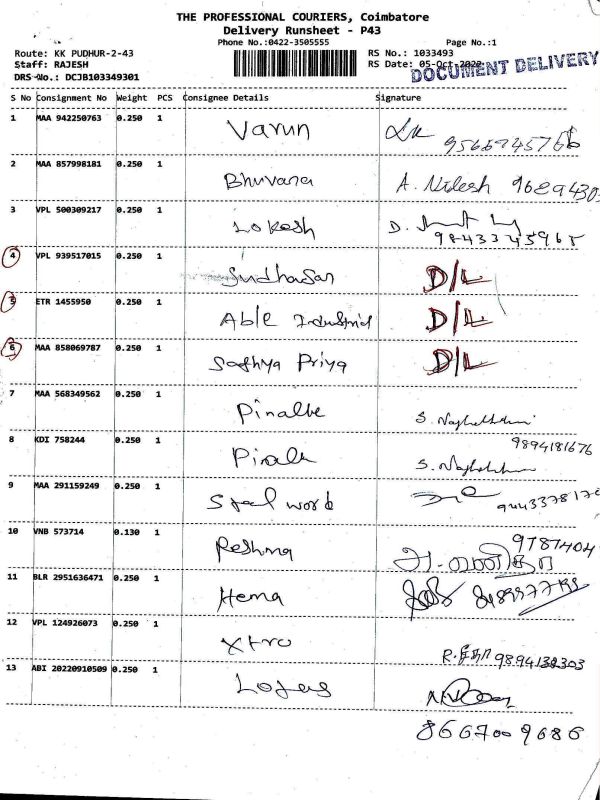 THE PROFESSIONAL COURIERS, Coimbatore
Delivery Runsheet - P43
Phone No.:0422-3505555
Page No.:1
Route: KK PUDHUR-2-43
RS No.: 1033493
Staff: RAJESH
RS Date: 05-Oct-2022
DOCUMENT DELIVERY
DRS No.: DCJB103349301
S No Consignment No Weight PCS Consignee Details Signature
1 MAA 942250763 0.250 1 Varun
2 MAA 857998181 0.250 1 Bhuvana A. Nilesh
3 VPL 500309217 0.250 1 Lokesh D.
9843345965
4 VPL 939517015 0.250 1 Sudhasan D/L
5 ETR 1455950 0.250 1 Able Industrial D/L
6 MAA 858069787 0.250 1 Sathya Priya D/L
7 MAA 568349562 0.250 1 S.
8 KDI 758244 0.250 1 9894181676
S.
9 MAA 291159249 0.250 1 Steel word
10 VNB 573714 0.130 1 Reshma 9787404
11 BLR 2951636471 0.250 1 Hema
12 VPL 124926073 0.250 1 Xtro 9894132303
13 ABI 20220910509 0.250 1
8667009686